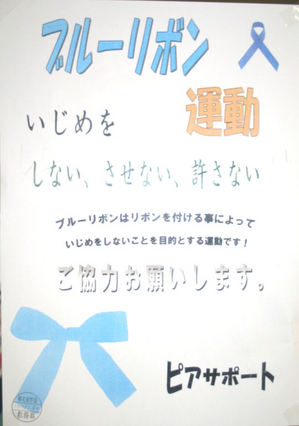 ブルーリボン
運動
いじめを
しない、させない、許さない
ブルーリボンはリボンを付ける事によって
いじめをしないことを目的とする運動です！
ご協力お願いします。
ピアサポート